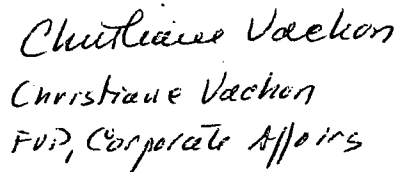 Christiane Vachon
Christiane Vachon
EVP, Corporate Affairs